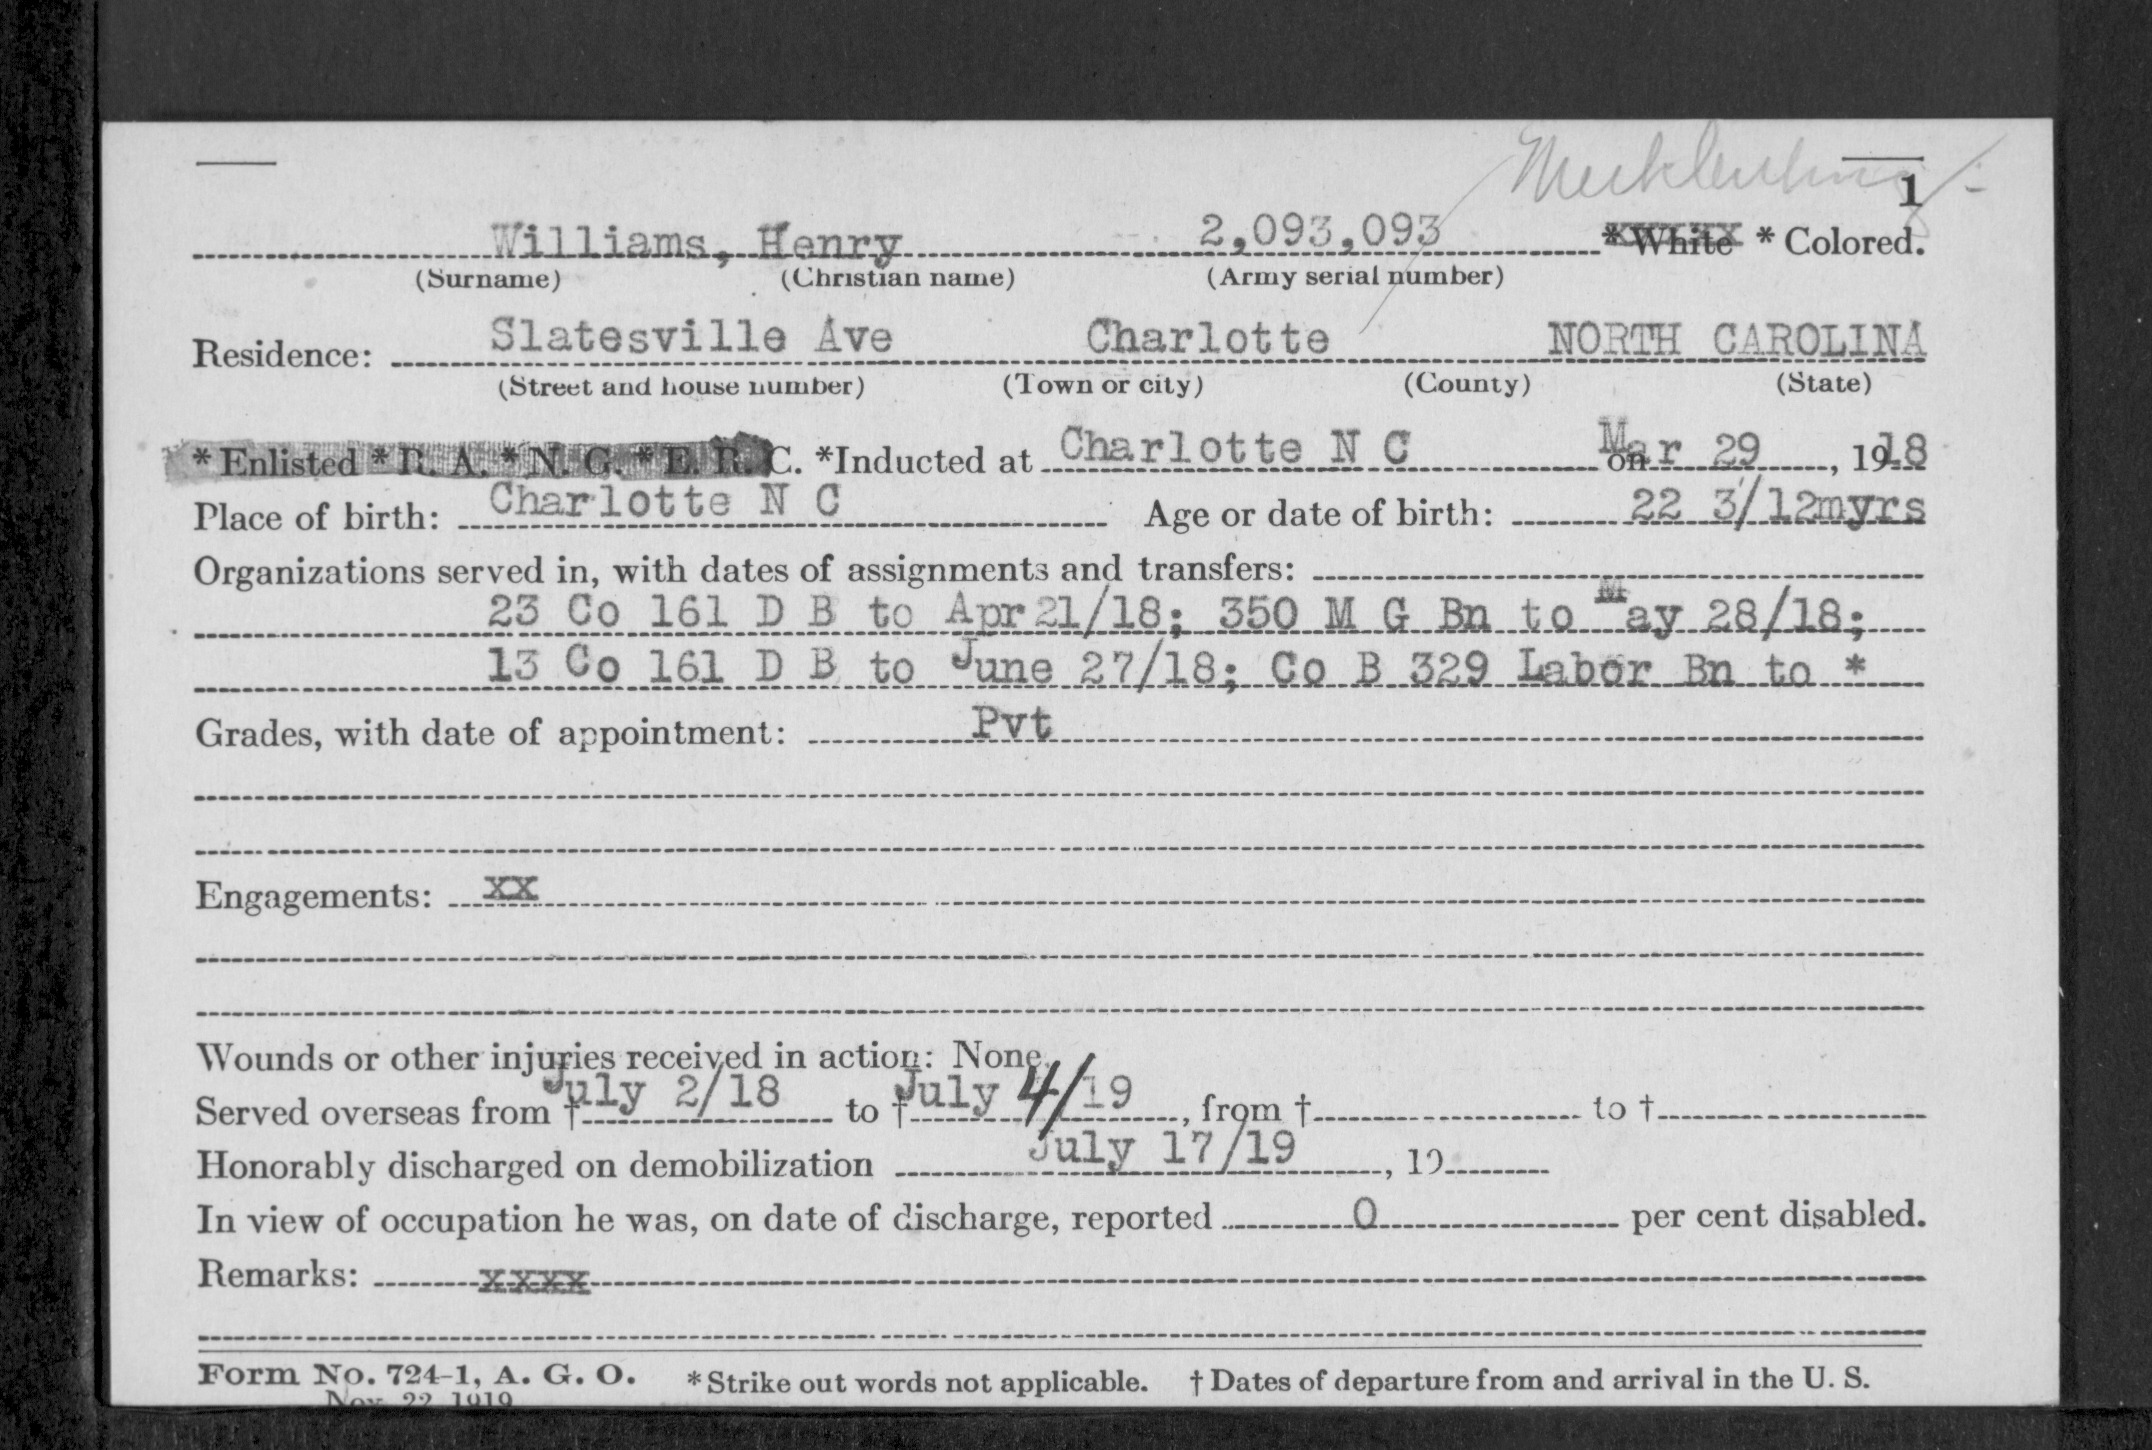 Mecklenburg
1
Williams, Henry 2,093,093 * White * Colored.
(Surname) (Christian name) (Army serial number)
Residence: Slatesville Ave Charlotte NORTH CAROLINA
(Street and house number) (Town or city) (County) (State)
* Enlisted * R. A. * N. G. * E. R. C. *Inducted at Charlotte N C on Mar 29, 1918
Place of birth: Charlotte N C Age or date of birth: 22 3/12myrs
Organizations served in, with dates of assignments and transfers:
23 Co 161 D B to Apr 21/18; 350 M G Bn to May 28/18;
13 Co 161 D B to June 27/18; Co B 329 Labor Bn to *
Grades, with date of appointment: Pvt
Engagements: xx
Wounds or other injuries received in action: None.
Served overseas from † July 2/18 to † July 4/19, from † to †
Honorably discharged on demobilization July 17/19, 19
In view of occupation he was, on date of discharge, reported 0 per cent disabled.
Remarks: xxxx
Form No. 724-1, A. G. O. * Strike out words not applicable. † Dates of departure from and arrival in the U. S.
Nov. 22, 1919